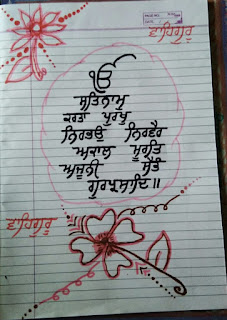 ਵਾਹਿਗੁਰੂ
ੴ
ਸਤਿਨਾਮੁ
ਕਰਤਾ ਪੁਰਖੁ
ਨਿਰਭਉ ਨਿਰਵੈਰ
ਅਕਾਲ ਮੂਰਤਿ
ਅਜੂਨੀ ਸੈਭੰ
ਗੁਰਪ੍ਰਸਾਦਿ॥
ਵਾਹਿਗੁਰੂ